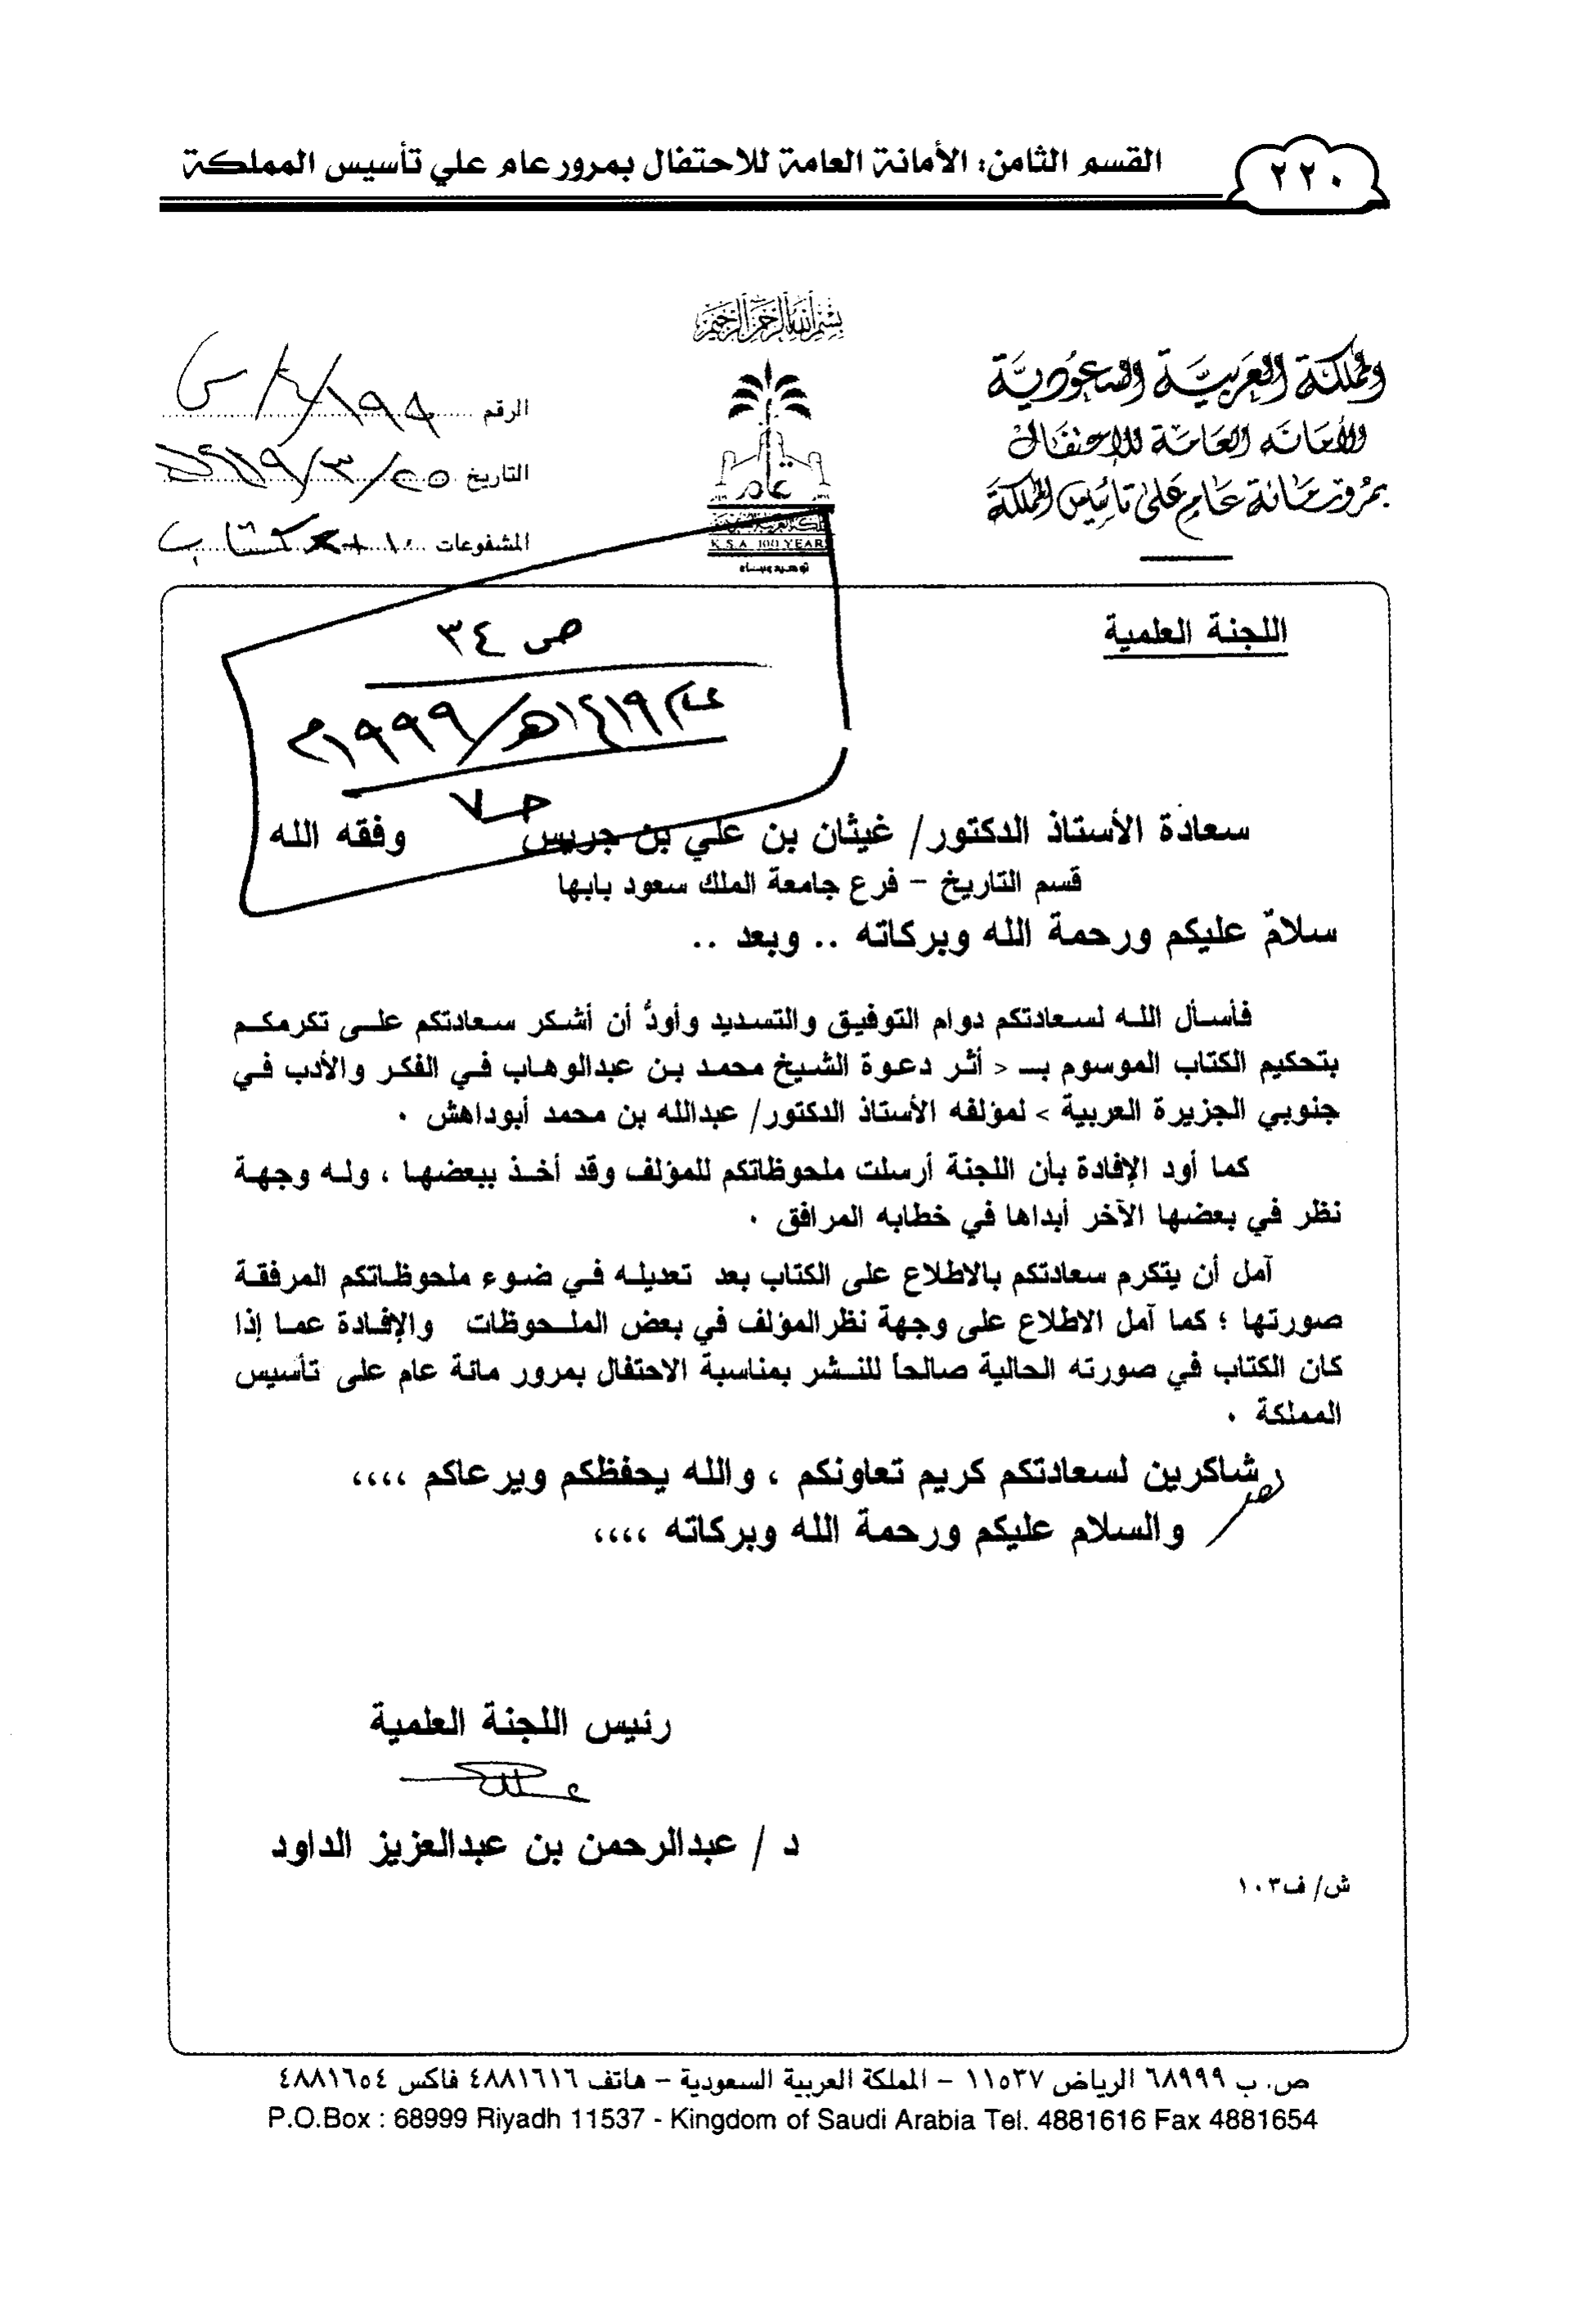 القسم الثامن: الأمانة العامة للاحتفال بمرور عام علي تأسيس المملكة
٢٢٠
بسم الله الرحمن الرحيم
المملكة العربية السعودية
الأمانة العامة للاحتفال
بمرور مائة عام على تأسيس المملكة
الرقم
التاريخ ٢٥/٣/١٤١٩هـ
المشفوعات ١٠ + كتاب
عام
K.S.A 100 YEARS
اللجنة العلمية
ص ٣٤
١٤١٩هـ/١٩٩٩م
سعادة الأستاذ الدكتور/ غيثان بن علي بن جريس وفقه الله
قسم التاريخ - فرع جامعة الملك سعود بابها
سلامٌ عليكم ورحمة الله وبركاته .. وبعد ..
فأسأل الله لسعادتكم دوام التوفيق والتسديد وأودُّ أن أشكر سعادتكم على تكرمكم
بتحكيم الكتاب الموسوم بـ < أثر دعوة الشيخ محمد بن عبدالوهاب في الفكر والأدب في
جنوبي الجزيرة العربية > لمؤلفه الأستاذ الدكتور/ عبدالله بن محمد أبوداهش .
كما أود الإفادة بأن اللجنة أرسلت ملحوظاتكم للمؤلف وقد أخذ ببعضها ، وله وجهة
نظر في بعضها الآخر أبداها في خطابه المرافق .
آمل أن يتكرم سعادتكم بالاطلاع على الكتاب بعد تعديله في ضوء ملحوظاتكم المرفقة
صورتها ؛ كما آمل الاطلاع على وجهة نظر المؤلف في بعض الملحوظات والإفادة عما إذا
كان الكتاب في صورته الحالية صالحاً للنشر بمناسبة الاحتفال بمرور مائة عام على تأسيس
المملكة .
شاكرين لسعادتكم كريم تعاونكم ، والله يحفظكم ويرعاكم ،،،،
والسلام عليكم ورحمة الله وبركاته ،،،،
رئيس اللجنة العلمية
د / عبدالرحمن بن عبدالعزيز الداود
ش/ ف١٠٣
ص. ب ٦٨٩٩٩ الرياض ١١٥٣٧ - المملكة العربية السعودية - هاتف ٤٨٨١٦١٦ فاكس ٤٨٨١٦٥٤
P.O.Box : 68999 Riyadh 11537 - Kingdom of Saudi Arabia Tel. 4881616 Fax 4881654